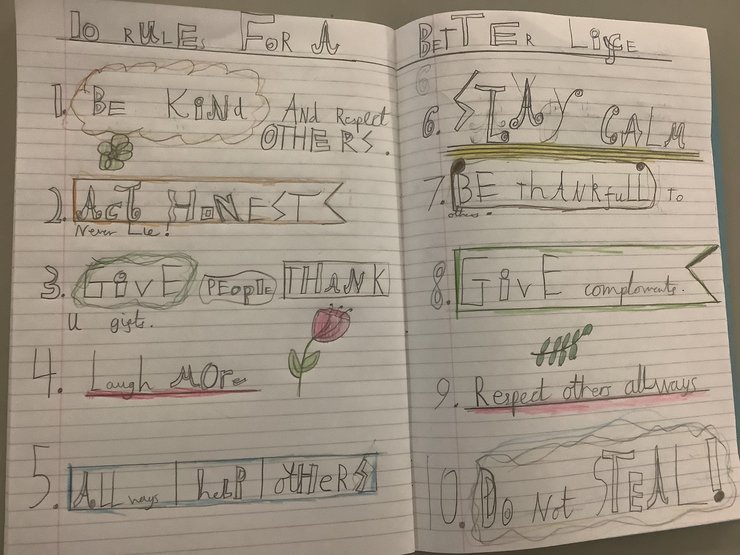 10 RULES FOR A
1. BE KIND AND Respect
OTHERS.
2. ACT HONEST
Never Lie!
3. GIVE PEOPLE THANK
U gifts.
4. Laugh MORe
5. ALLways help OTHERS
BETTER Life
6. STAY CALM
7. BE THANKfull TO
others.
8. GIVE complements.
9. Respect others allways
10. Do Not STEAL!